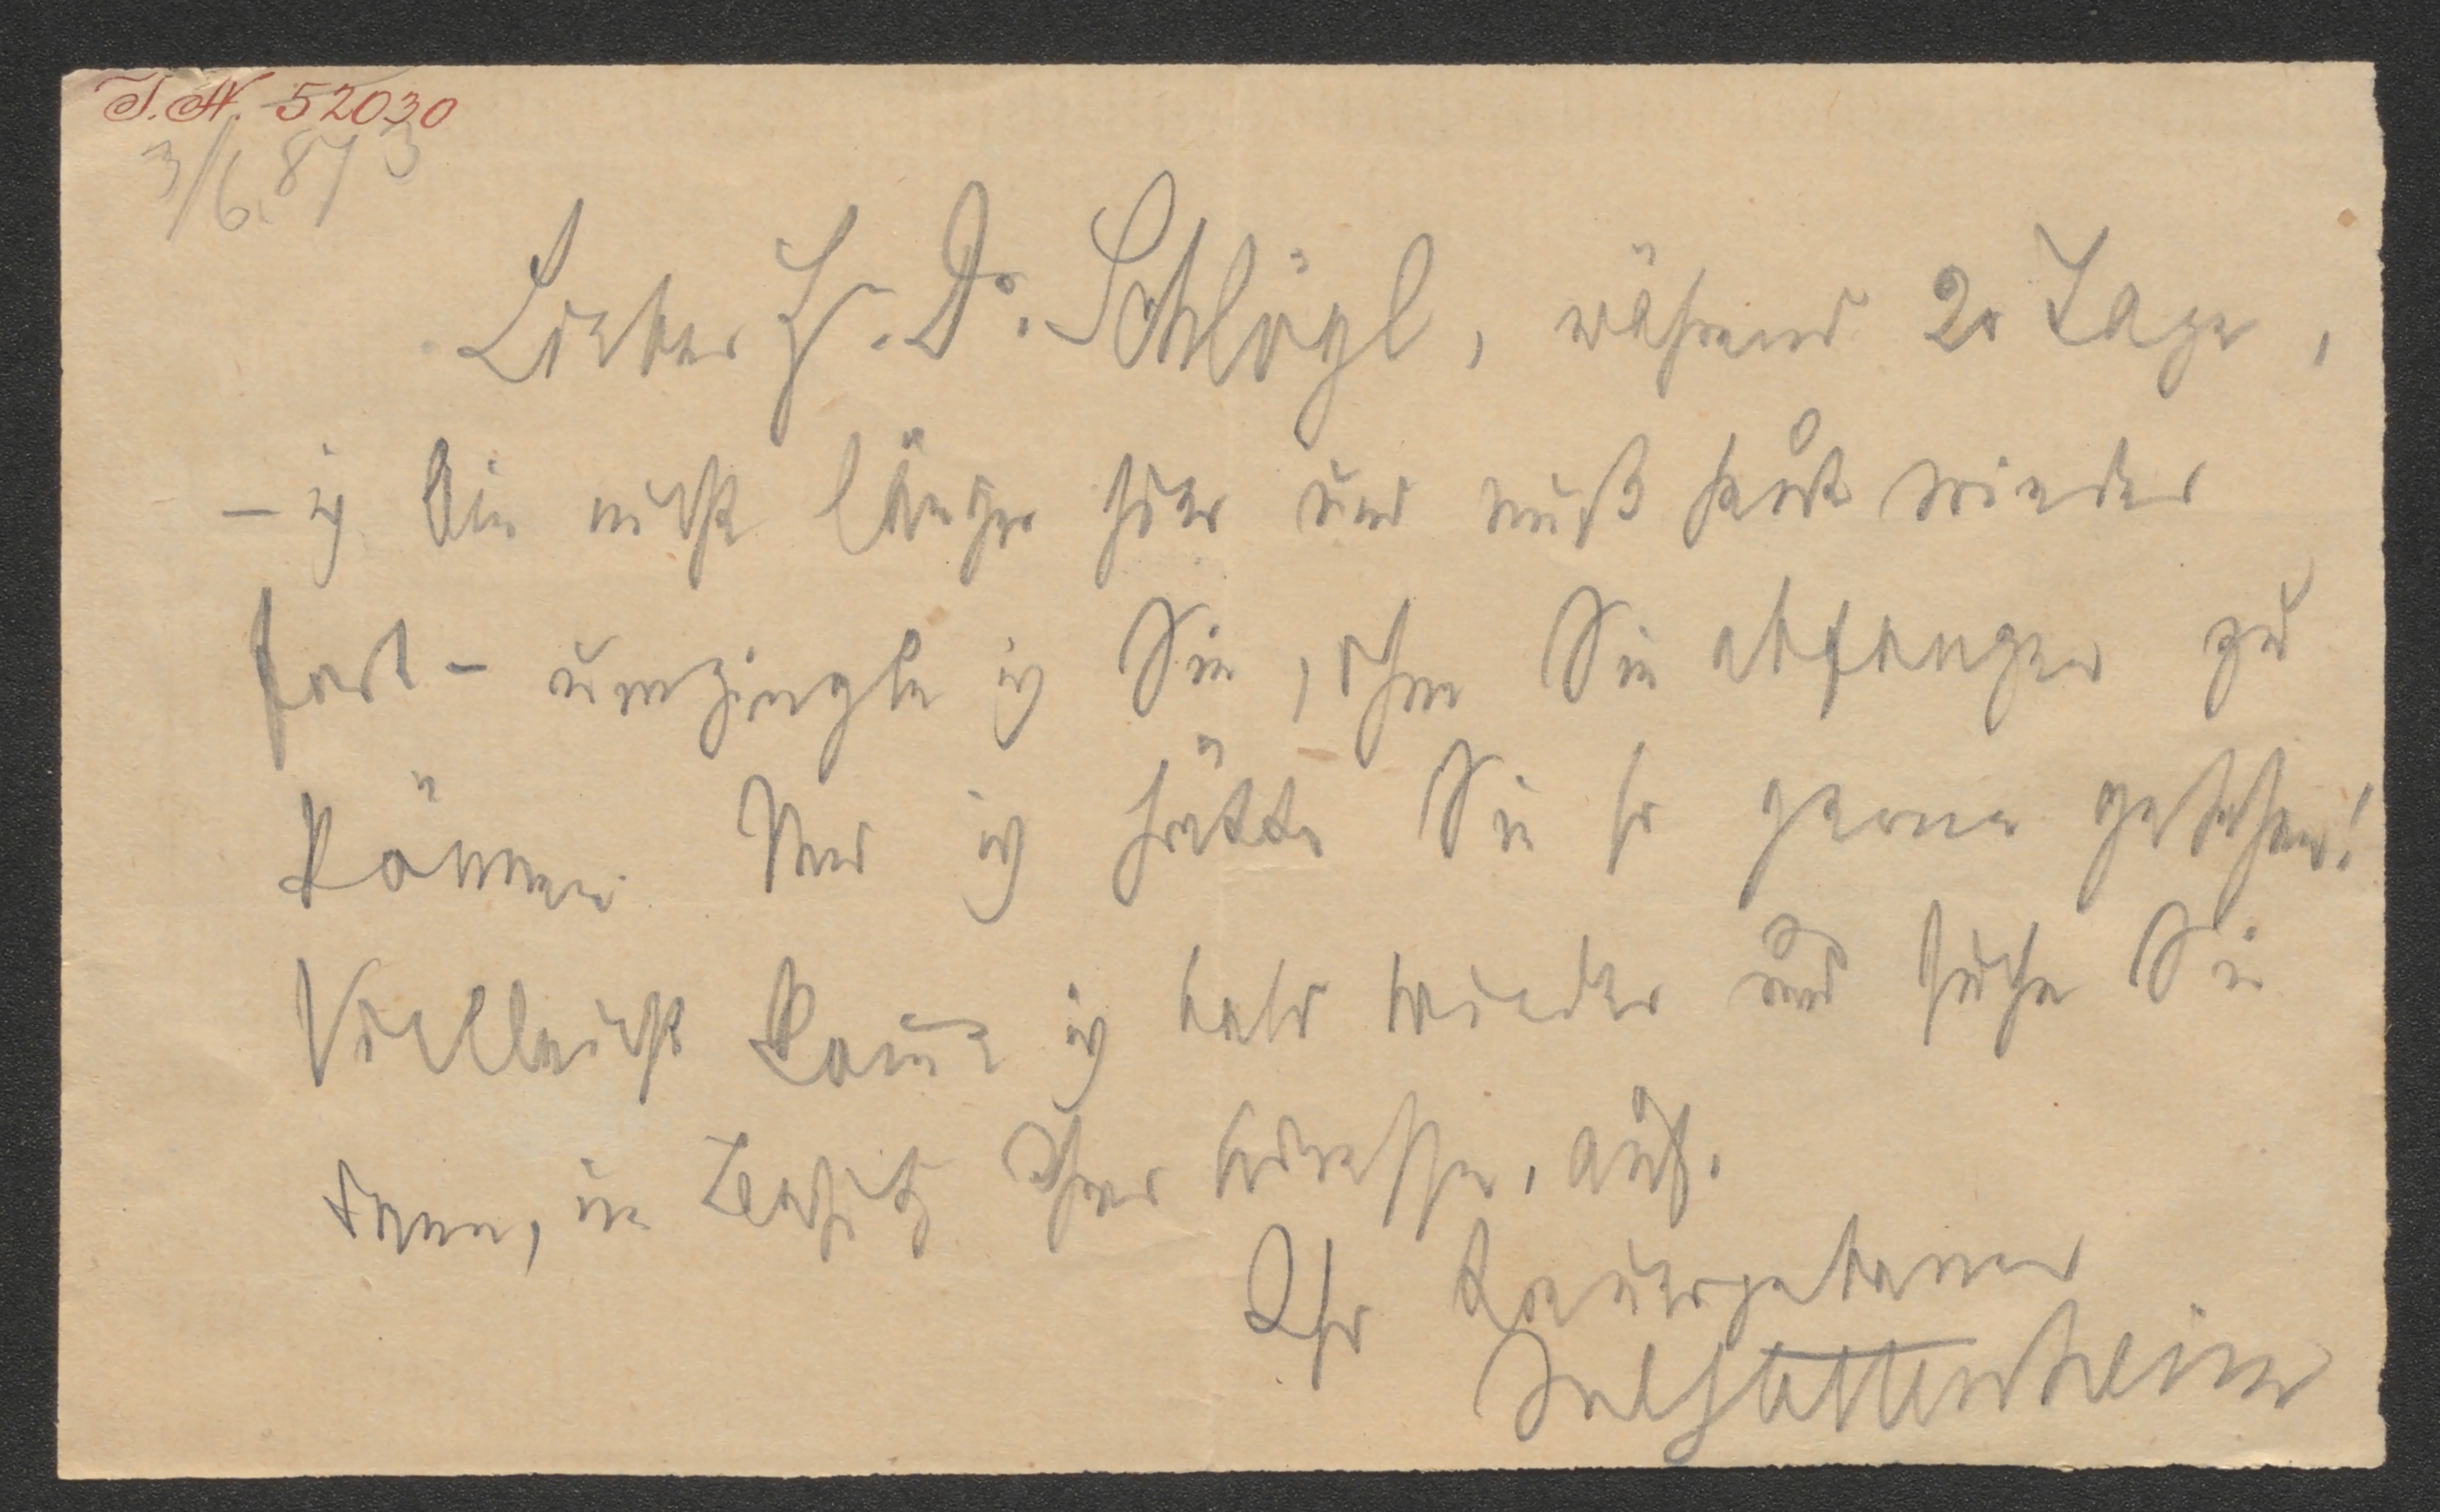 I.N. 52030
3/6. 873
Lieber Hr. Dr. Schlögl, während 2 Tage,
– ich bin nicht länger hier und muß heut wieder
fort – umzingle ich Sie, ohne Sie abfangen zu
können. Und ich hätte Sie so gerne gesehen!
Vielleicht kom̄e ich bald wieder und suche Sie
dann, im Besitz Ihrer Adresse, auf.
Ihr treuergebener
JulStettenheim